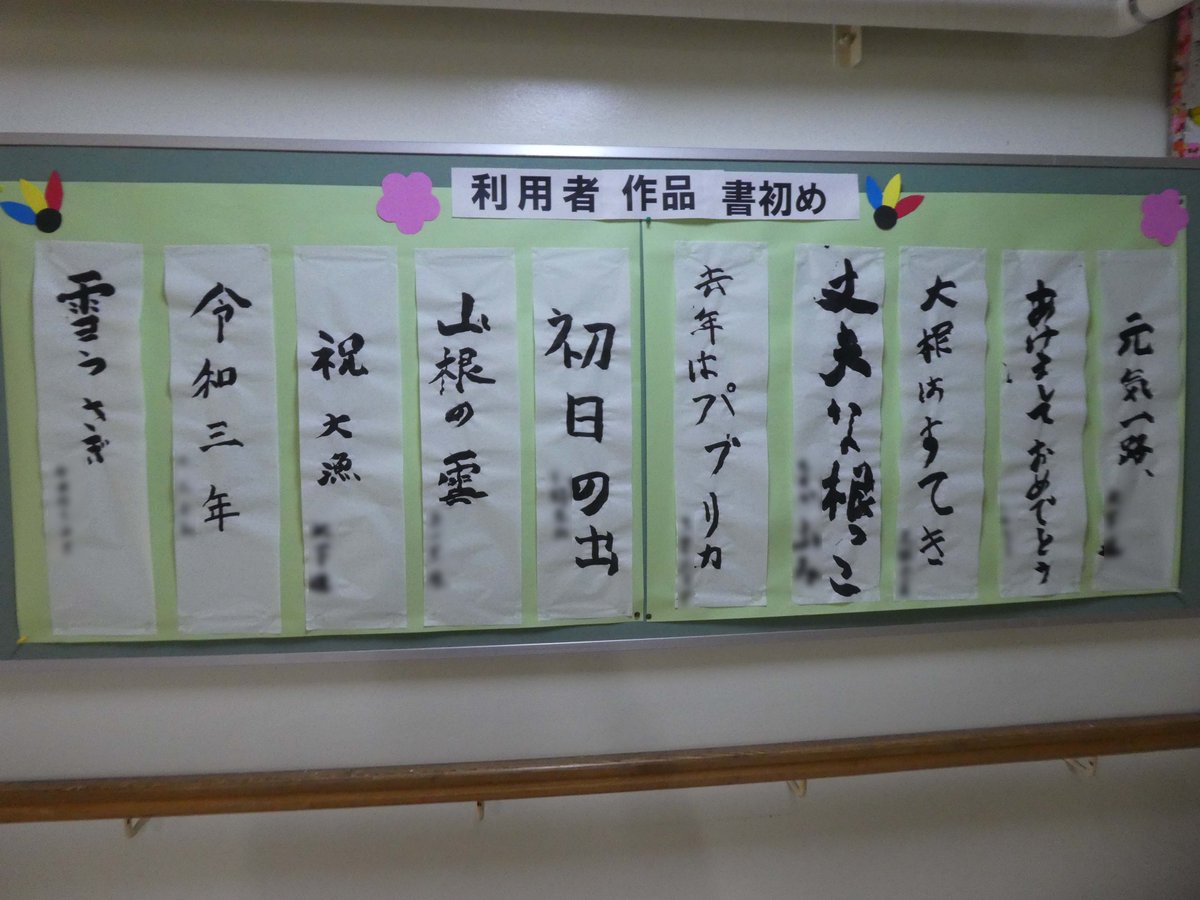 利用者 作品 書初め
元気一路、
あけましておめでとう
大根はすてき
丈夫な根っこ
去年はパプリカ
初日の出
山根の雲
祝大漁
令和三年
雪うさぎ